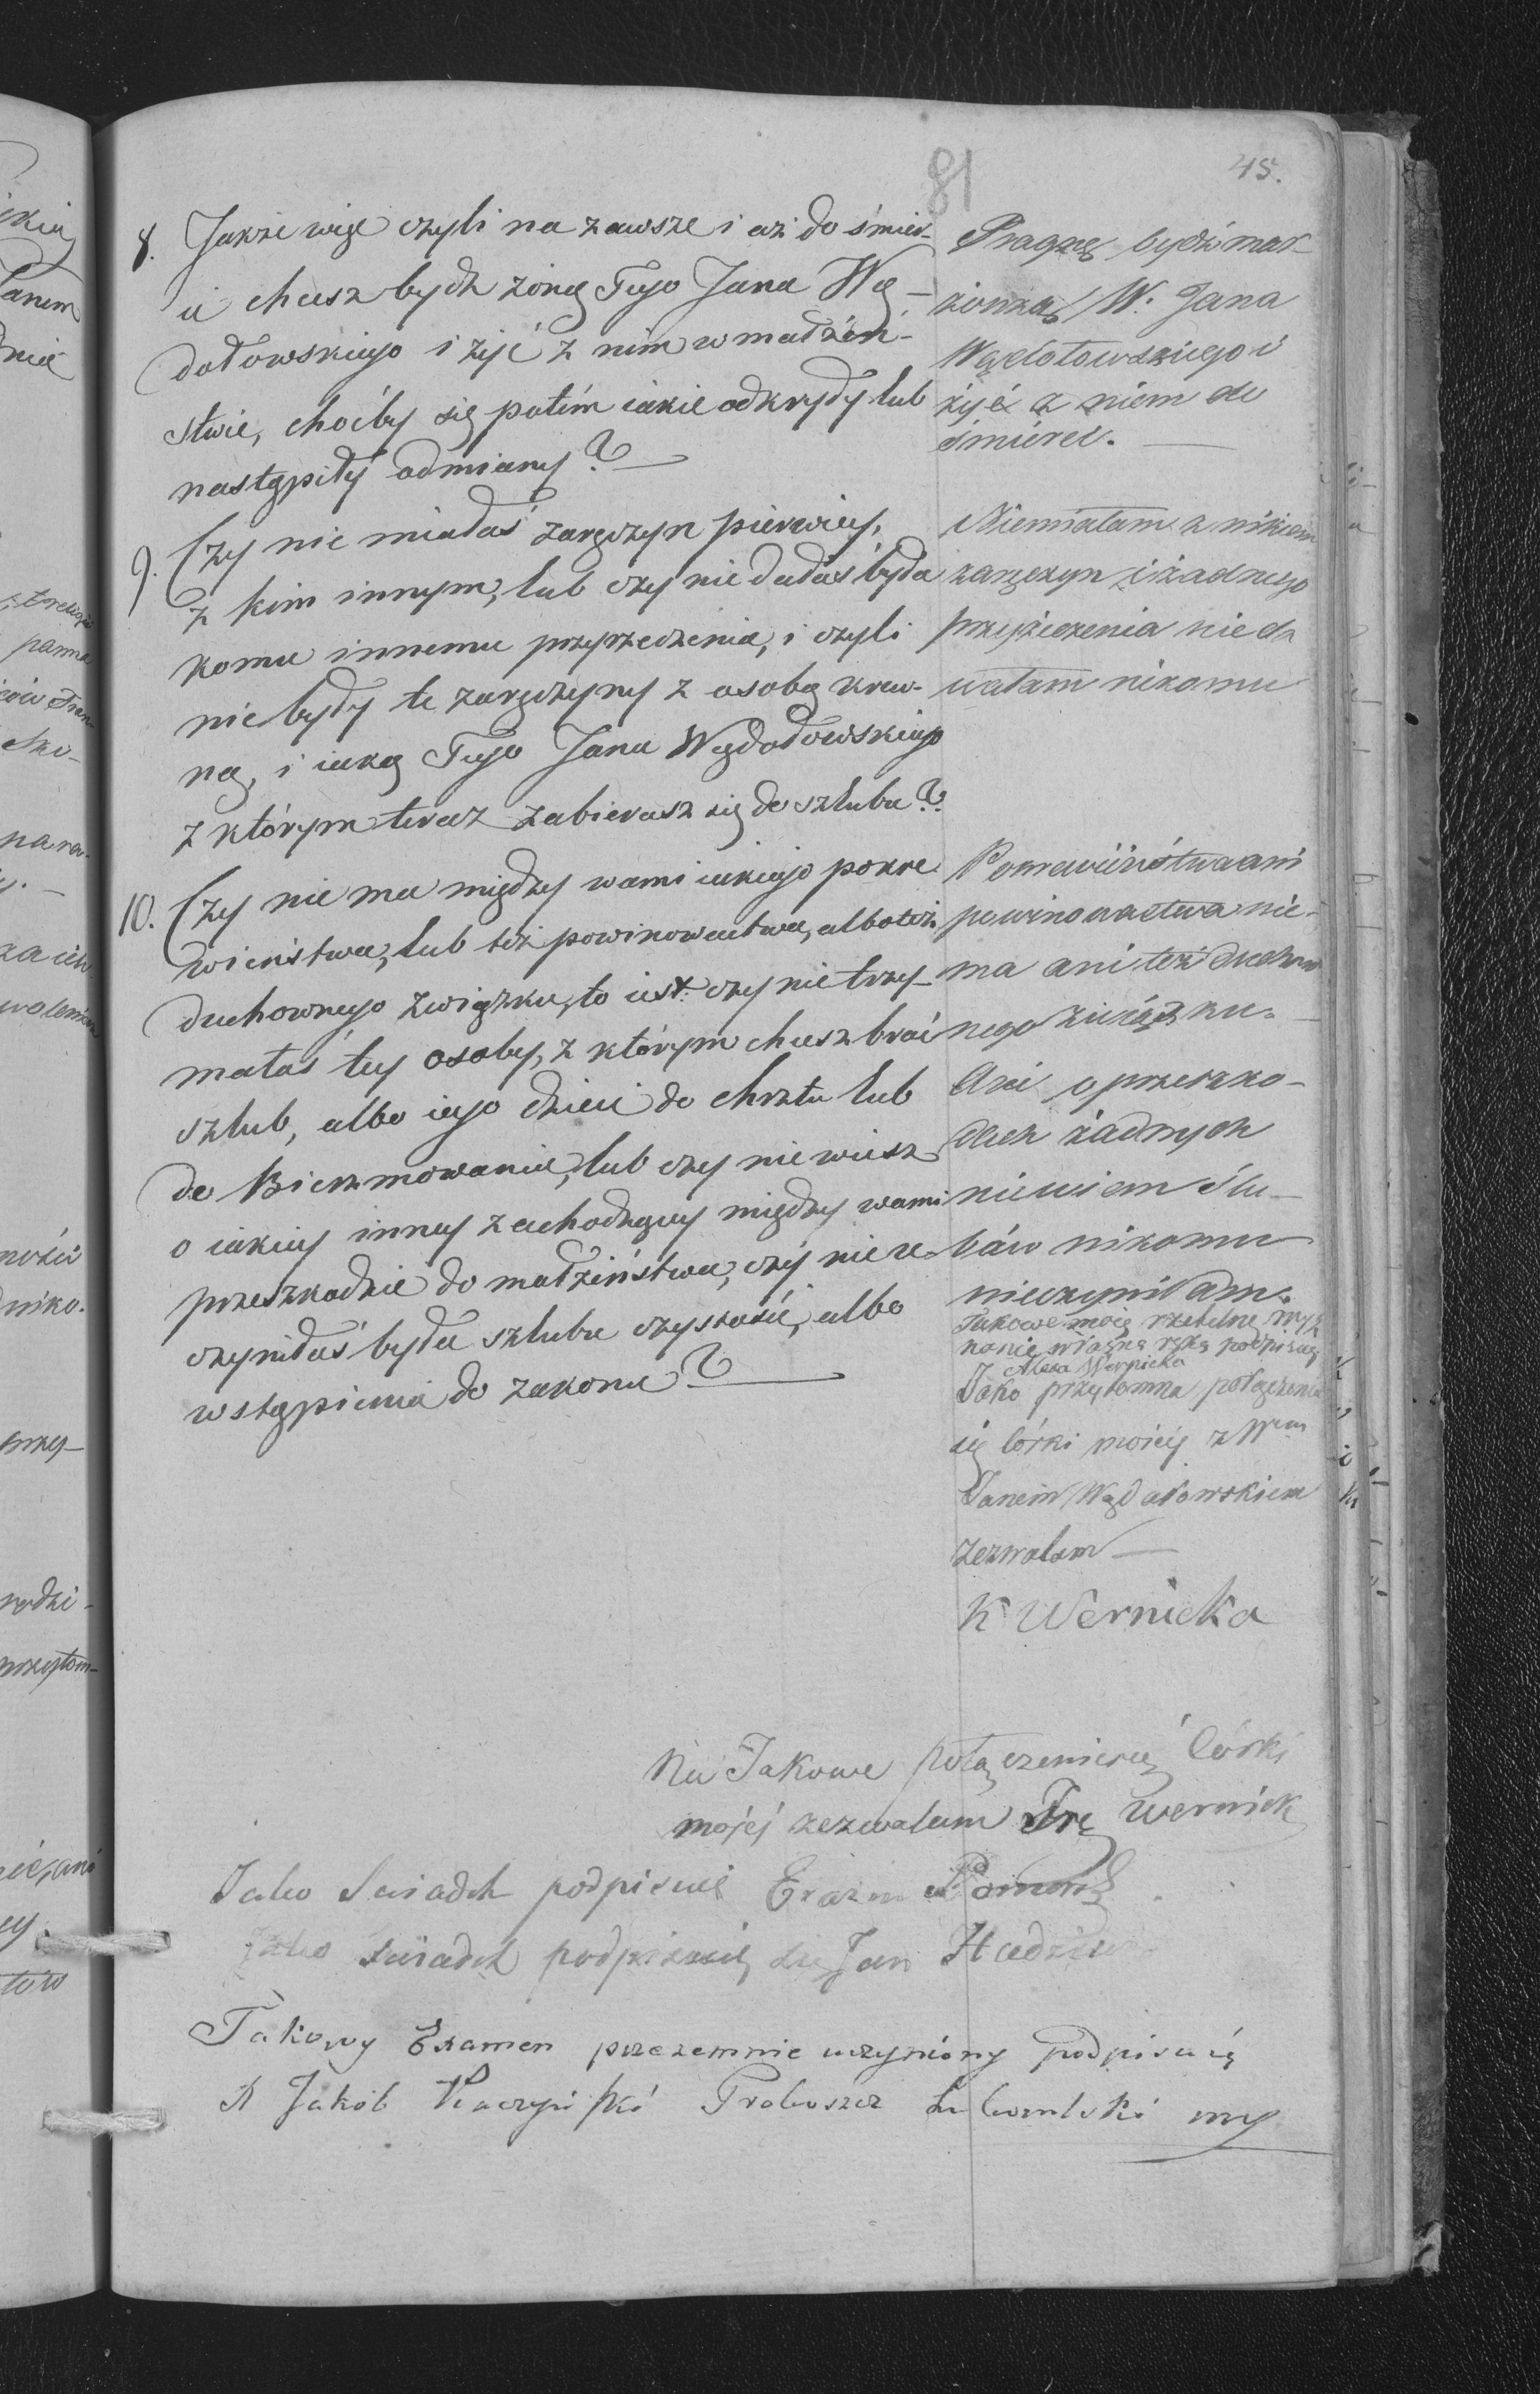 81
45.
8. Jakże więc czyli na zawsze i aż do śmier-
ci chcesz bydź żoną Tego Jana Wę-
dołowskiego i żyć z nim w małżeń-
stwie, choćby się potim iakie odkryły lub
nastąpiły odmiany?
Pragnę bydź mał-
żonką W. Jana
Wędołowskiego i
żyić z niem do
śmierci.
9. Czy nie miałaś zaręczyn pierwiey,
z kim innym, lub czy nie dałaś była
komu innemu przyrzeczenia, i czyli
nie były te zaręczyny z osobą krew-
ną, i iaką Tego Jana Wędołowskiego
z którym teraz zabierasz się do szlubu?
Niemiałam z nikiem
zaręczyn i żadnego
przyżeczenia nieda
wałam nikomu
10. Czy nie ma między wami iakiego pokre
wieństwa, lub też powinowactwa, alboteż
duchownego związku, to iest: czy nie trzy-
małaś tey osoby, z którym chcesz brać
szlub, albo iego dzieci do chrztu lub
do Bierzmowania, lub czy nie wiesz
o iakiey inney zachodzącey między wami
przeszkodzie do małżeństwa, czyś nie u-
czyniłaś była szlubu czystości, albo
wstąpienia do zakonu?
Pokrewieństwa ani
powinowactwa nie-
ma ani też duchow
nego związku.
Ani o przeszko-
dach żadnych
niewiem Ślu-
bów nikomu
nieczyniłam.
Takowe moie rzetelne wyz
nanie własną ręką podpisuię
Wernicka
Jako przytomna połączenia
się Córki moiéy z Wem
Janem Wędołowskiem
zezwalam
K Wernicka
Na Takowe połączeniesię Córki
mojéj zezwalam Wernick
Jako Swiadek podpisuię Erazm
Jako Swiadek podpisuię się Jan
Takowy Examen przezemnie uczyniony podpisuię
X Jakób Proboszcz mp